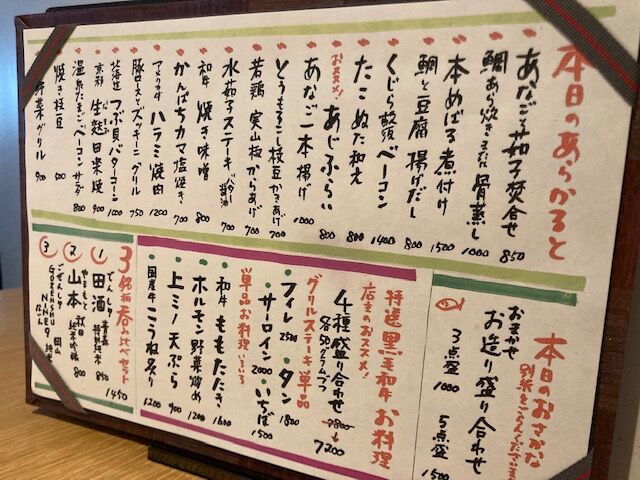 本日のあらかると
あなごと茄子焚合せ 850
鯛あら炊きまたは骨蒸し 1000
本めばる煮付け 1500
鯛と豆腐揚げだし 800
くじら畝須ベーコン 1400
たこぬた和え 800
おススメ!
あじふらい 800
あなご一本揚げ 1000
とうもろこし枝豆かきあげ 700
若鶏 実山椒からあげ 700
水茄子ステーキ バター醤油 700
和牛 焼き味噌 800
かんぱちカマ塩焼き 700
アメリカ牛 ハラミ焼肉 1200
豚ロースとズッキーニグリル 750
北海道 つぶ貝バターコーン 1000
京都 生麩田楽焼 900
温泉たまごベーコンサラダ 800
焼き枝豆 500
野菜グリル 900
本日のおさかな
別紙をごらんくださいませ
おまかせ
お造り盛り合わせ
3点盛 1000
5点盛 1500
特選黒毛和牛お料理
店主のおススメ!
4種盛り合わせ 7800→7200
各50グラムづつ
グリルステーキ単品
・フィレ 2500 ・タン 1800
・サーロイン 2000 ・いちぼ 1500
単品お料理いろいろ
和牛 ももたたき 1600
ホルモン野菜炒め 1200
上ミノ天ぷら 900
国産牛 こうね炙り 1200
3銘柄呑み比べセット 1450
1 田酒 青森 特別純米 850
でんしゅ
2 山本 秋田 純米吟醸 800
やまもと
3 ごぜんしゅ 岡山
GOZENSHU NINE9 純米